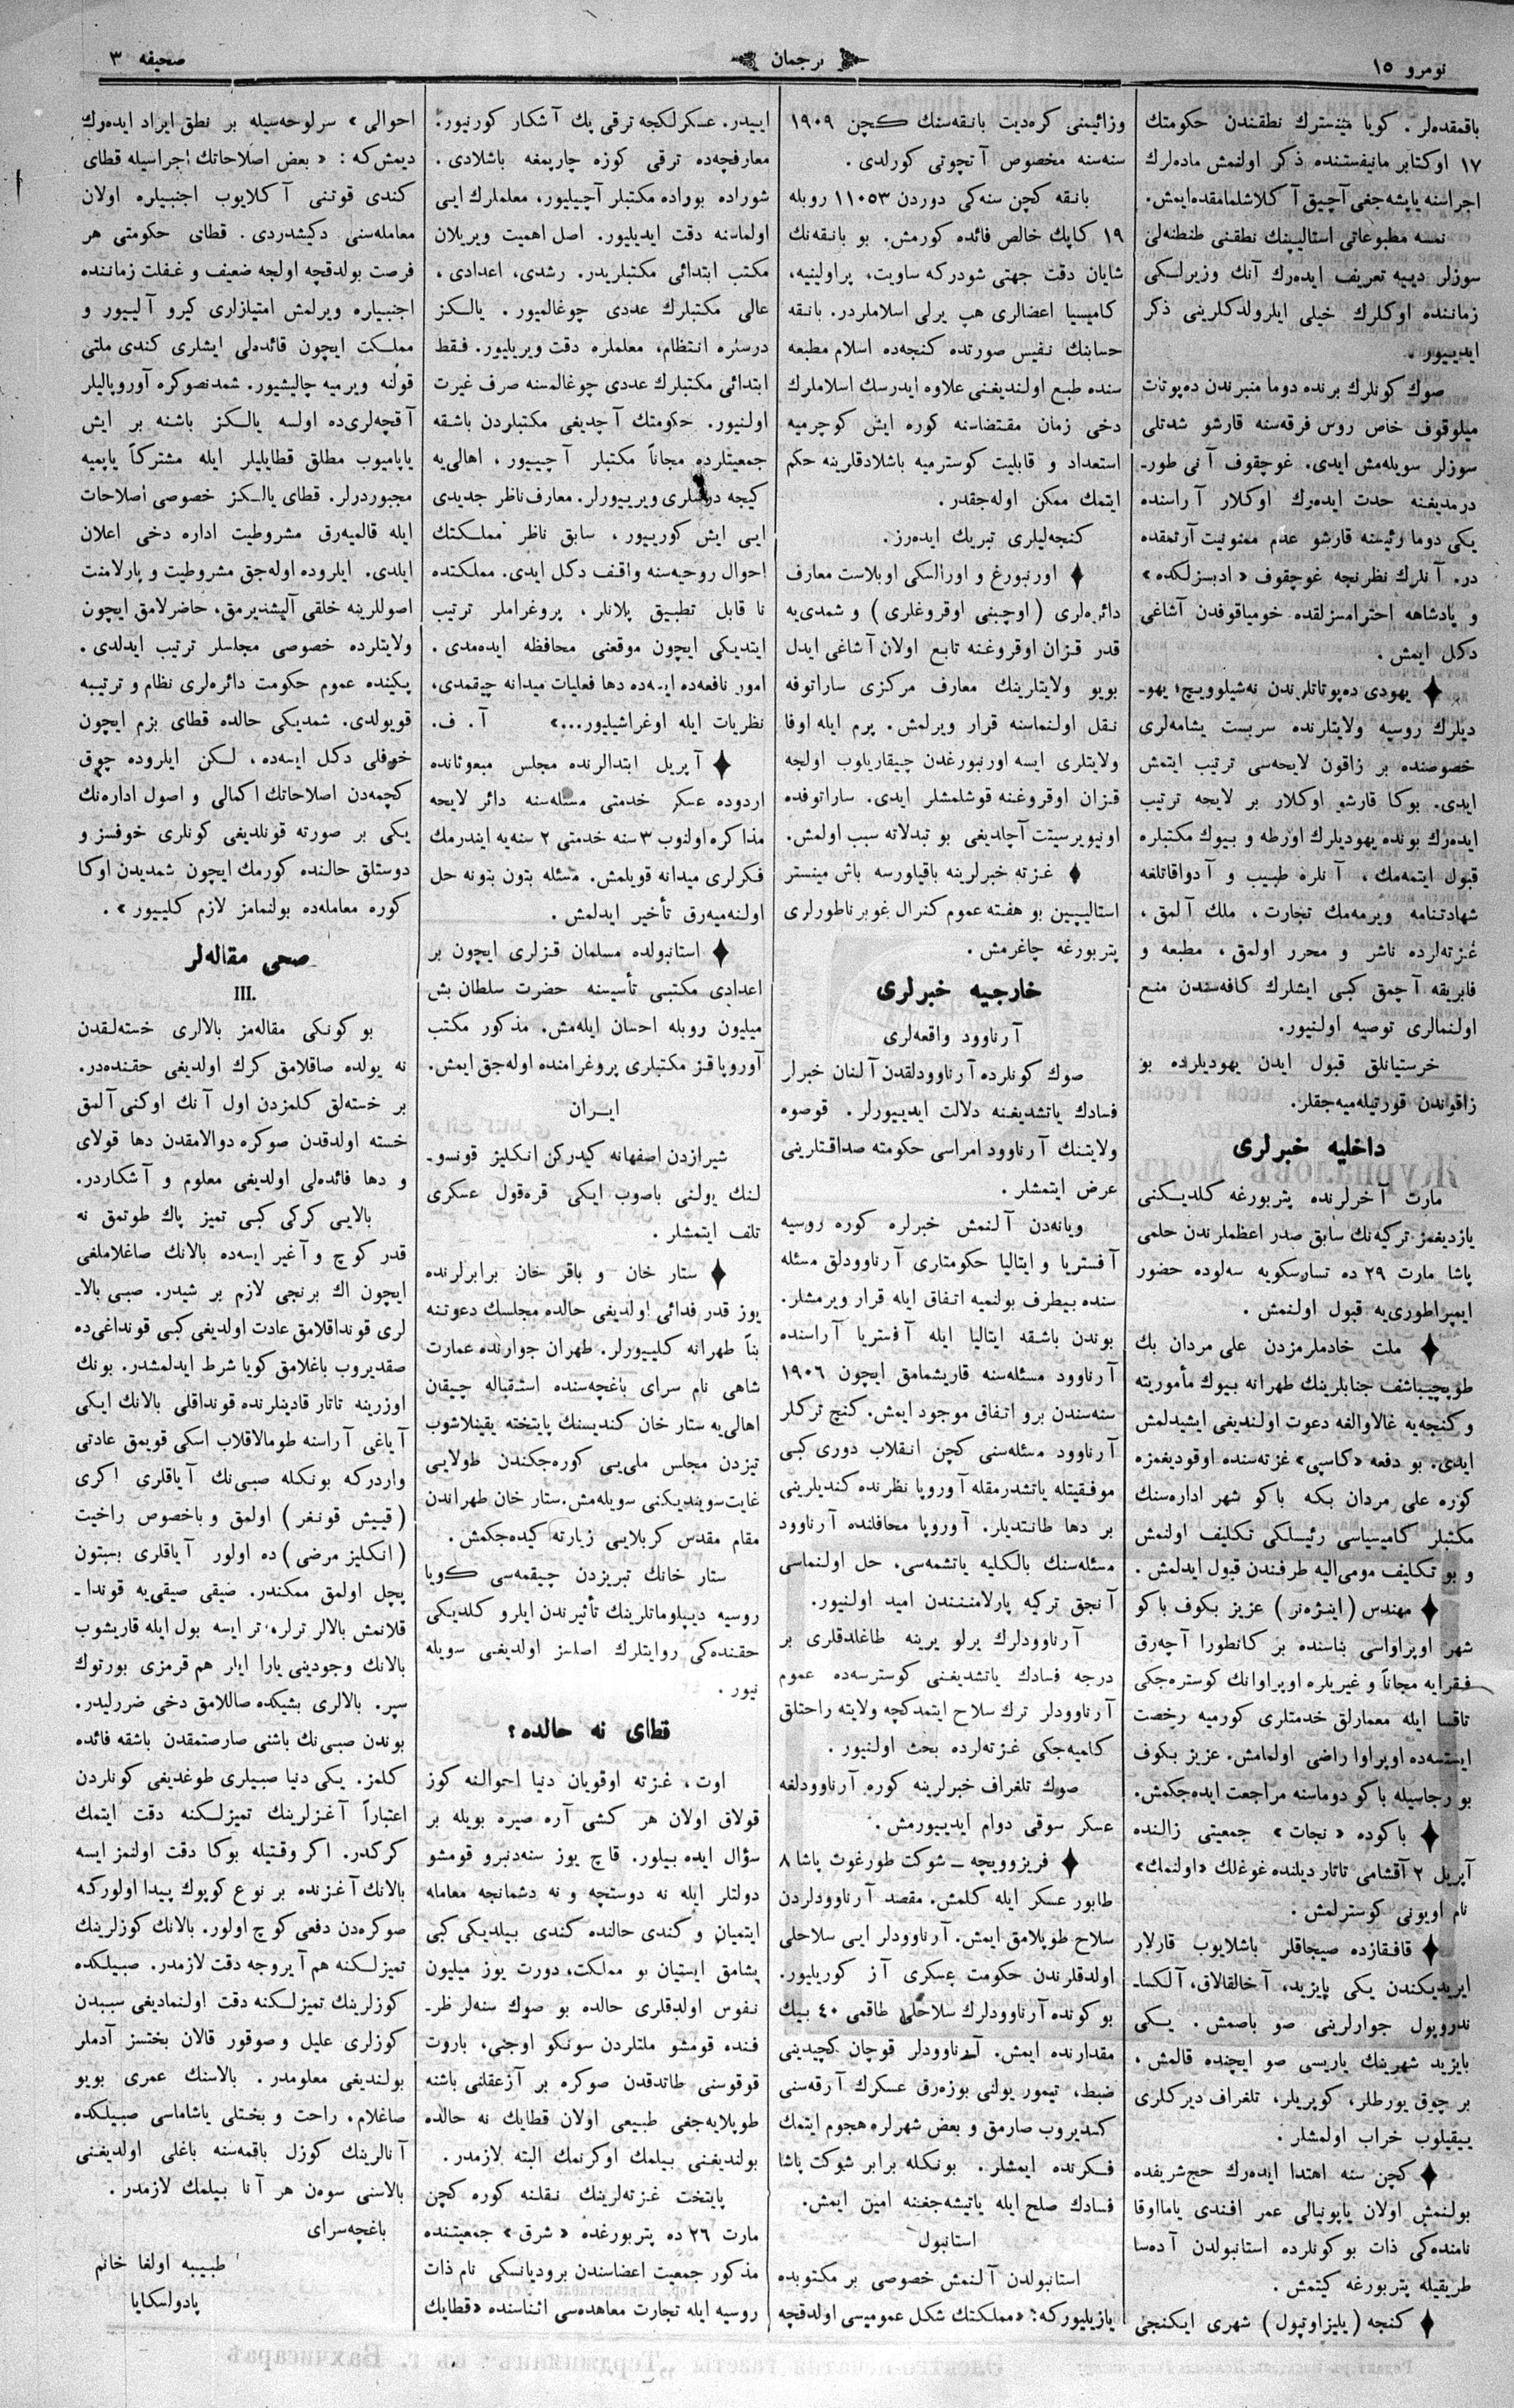 نومرو ١٥
ترجمان
صحيفه ٣
باقمقده‌لر. كويا مينسترك نطقندن حكومتك
١٧ اوكتابر مانيفستنده ذكر اولنمش ماده‌لرك
اجراسنه ياپشه‌جغی آچيق آكلاشلمامقده‌ايمش.
نمسه مطبوعاتی استاليپنك نطقنی طنطنه‌لی
سوزلر دييه تعريف ايده‌رك آنك وزيرلكی
زماننده اوكلرك خيلی ايلرولدكلرينی ذكر
ايدييور.
صوك كونلرك برنده دوما منبرندن ده‌پوتات
ميلوقوف خاص روس فرقه‌سنه قارشو شدتلی
سوزلر سويله‌مش ايدی. غوچقوف آنی طور-
درمديغنه حدت ايده‌رك اوكلار آراسنده
يكی دوما رئيسنه قارشو عدم ممنونيت آرتمقده
در. آنلرك نظرنجه غوچقوف «ادبسزلكده»
و پادشاهه احترامسزلقده خومياقوفدن آشاغی
دكل ايمش.
يهودی ده‌پوتاتلرندن نه‌شيلوويچ؛ يهو-
ديلرك روسيه ولايتلرنده سربست يشامه‌لری
خصوصنده بر زاقون لايحه‌سی ترتيب ايتمش
ايدی. بوكا قارشو اوكلار بر لايحه ترتيب
ايده‌رك بونده يهوديلرك اورطه و بيوك مكتبلره
قبول ايتمه‌مك، آنلره طبيب و آدواقاتلغه
شهادتنامه ويرمه‌مك تجارت، ملك آلمق،
غزته‌لرده ناشر و محرر اولمق، مطبعه و
فابريقه آچمق كبی ايشلرك كافه‌سندن منع
اولنمالری توصيه اولنيور.
خرستيانلق قبول ايدن يهوديلرده بو
زاقوندن قورتيله‌ميه‌جقلر.
داخليه خبرلری
مارت آخرلرنده پتربورغه كلديكنی
يازديغمز تركيه‌نك سابق صدر اعظملرندن حلمی
پاشا مارت ٢٩ ده تسارسكويه سه‌لوده حضور
ايمپراطوری‌يه قبول اولنمش.
ملت خادملرمزدن علی مردان بك
طوپچيباشف جنابلرينك طهرانه بيوك مأموريته
و كنجه‌يه غالاوالغه دعوت اولنديغی ايشيدلمش
ايدی. بو دفعه «كاسپی» غزته‌سنده اوقوديغمزه
كوره علی مردان بكه باكو شهر اداره‌سنك
مكتبلر كاميسياسی رئيسلكی تكليف اولنمش
و بو تكليف مومی‌اليه طرفندن قبول ايدلمش.
مهندس (اينژه‌نر) عزيز بكوف باكو
شهر اوپراواسی بناسنده بر كانطورا آچه‌رق
فقرايه مجاناً و غيريلره اوپراوانك كوستره‌جكی
تاقسا ايله معمارلق خدمتلری كورميه رخصت
ايستسه‌ده اوپراوا راضی اولمامش. عزيز بكوف
بو رجاسيله باكو دوماسنه مراجعت ايده‌جكمش.
باكوده «نجات» جمعيتی زالنده
آپريل ٢ آقشامی تاتار ديلنده غوغلك «اولنمك»
نام اويونی كوسترلمش.
قافقازده صيجاقلر باشلايوب قارلار
ايريديكندن يكی بايزيد، آخالقالاق، آلكسا-
ندروپول جوارلرينی صو باصمش. يكی
بايزيد شهرينك ياريسی صو ايچنده قالمش،
بر چوق يورطلر، كوپريلر، تلغراف ديركلری
ييقيلوب خراب اولمشلر.
كچن سنه اهتدا ايده‌رك حج شريفده
بولنمش اولان ياپونيالی عمر افندی يامااوقا
نامنده‌كی ذات بو كونلرده استانبولدن آده‌سا
طريقيله پتربورغه كيتمش.
كنجه (يليزاوتپول) شهری ايكنجی
وزائيمنی كره‌ديت بانقه‌سنك كچن ١٩٠٩
سنه‌سنه مخصوص آتچوتی كورلدی.
بانقه كچن سنه‌كی دوردن ١١٠٥٣ روبله
١٩ كاپك خالص فائده كورمش. بو بانقه‌نك
شايان دقت جهتی شودركه ساويت، پراولينيه،
كاميسيا اعضالری هپ يرلی اسلاملردر. بانقه
حسابنك نفيس صورتده كنجه‌ده اسلام مطبعه
سنده طبع اولنديغنی علاوه ايدرسك اسلاملرك
دخی زمان مقتضاسنه كوره ايش كوچرميه
استعداد و قابليت كوسترميه باشلادقلرينه حكم
ايتمك ممكن اوله‌جقدر.
كنجه‌ليلری تبريك ايده‌رز.
اورنبورغ و اورالسكی اوبلاست معارف
دائره‌لری (اوچبنی اوقروغلری) و شمدی‌يه
قدر قزان اوقروغنه تابع اولان آشاغی ايدل
بويو ولايتلرينك معارف مركزی ساراتوفه
نقل اولنماسنه قرار ويرلمش. پرم ايله اوفا
ولايتلری ايسه اورنبورغدن چيقاريلوب اولجه
قزان اوقروغنه قوشلمشلر ايدی. ساراتوفده
اونيويرسيتت آچلديغی بو تبدلاته سبب اولمش.
غزته خبرلرينه باقيلورسه باش مينستر
استاليپين بو هفته عموم كنرال غوبرناطورلری
پتربورغه چاغرمش.
خارجيه خبرلری
آرناوود واقعه‌لری
صوك كونلرده آرناوودلقدن آلنان خبرلر
فسادك ياتشديغنه دلالت ايدييورلر. قوصوه
ولايتنك آرناوود امراسی حكومته صداقتلرينی
عرض ايتمشلر.
ويانه‌دن آلنمش خبرلره كوره روسيه
آفستريا و ايتاليا حكومتلری آرناوودلق مسئله
سنده بيطرف بولنميه اتفاق ايله قرار ويرمشلر.
بوندن باشقه ايتاليا ايله آفستريا آراسنده
آرناوود مسئله‌سنه قاريشمامق ايچون ١٩٠٦
سنه‌سندن برو اتفاق موجود ايمش. كنج تركلر
آرناوود مسئله‌سنی كچن انقلاب دوری كبی
موفقيتله ياتشدرمقله آوروپا نظرنده كنديلرينی
بر دها طانتديلر. آوروپا محافلنده آرناوود
مسئله‌سنك بالكليه ياتشمه‌سی، حل اولنماسی
آنجق تركيه پارلامنتندن اميد اولنيور.
آرناوودلرك يرلو يرينه طاغلدقلری بر
درجه فسادك ياتشديغنی كوسترسه‌ده عموم
آرناوودلر ترك سلاح ايتمدكچه ولايته راحتلق
كلميه‌جكی غزته‌لرده بحث اولنيور.
صوك تلغراف خبرلرينه كوره آرناوودلغه
عسكر سوقی دوام ايدييورمش.
فريزوويچه — شوكت طورغوت پاشا ٨
طابور عسكر ايله كلمش. مقصد آرناوودلردن
سلاح طوپلامق ايمش. آرناوودلر ايی سلاحلی
اولدقلرندن حكومت عسكری آز كوريليور.
بو كونده آرناوودلرك سلاحلی طاقمی ٤٠ بيك
مقدارنده ايمش. آرناوودلر قوچان كچيدينی
ضبط، تيمور يولنی بوزه‌رق عسكرك آرقه‌سنی
كسديروب صارمق و بعض شهرلره هجوم ايتمك
فكرنده ايمشلر. بونكله برابر شوكت پاشا
فسادك صلح ايله ياتيشه‌جغنه امين ايمش.
استانبول
استانبولدن آلنمش خصوصی بر مكتوبده
يازيليوركه: «مملكتك شكل عموميسی اولدقچه
اييدر. عسكرلكجه ترقی پك آشكار كورنيور.
معارفچه‌ده ترقی كوزه چارپمغه باشلادی.
شوراده بوراده مكتبلر آچيليور، معلملرك ايی
اولماسنه دقت ايديليور. اصل اهميت ويريلان
مكتب ابتدائی مكتبلريدر. رشدی، اعدادی،
عالی مكتبلرك عددی چوغالميور. يالكز
درسلره انتظام، معلملره دقت ويريليور. فقط
ابتدائی مكتبلرك عددی چوغالمسنه صرف غيرت
اولنيور. حكومتك آچديغی مكتبلردن باشقه
جمعيتلرده مجاناً مكتبلر آچييور، اهالی‌يه
كيجه درسلری ويرييورلر. معارف ناظر جديدی
ايی ايش كورييور، سابق ناظر مملكتك
احوال روحيه‌سنه واقف دكل ايدی. مملكتده
نا قابل تطبيق پلانلر، پروغراملر ترتيب
ايتديكی ايچون موقعنی محافظه ايده‌مدی.
امور نافعه‌ده ايسه‌ده دها فعليات ميدانه چيقمدی،
نظريات ايله اوغراشيليور...» آ. ف.
آپريل ابتدالرنده مجلس مبعوثانده
اردوده عسكر خدمتی مسئله‌سنه دائر لايحه
مذاكره اولنوب ٣ سنه خدمتی ٢ سنه‌يه ايندرمك
فكرلری ميدانه قويلمش. مسئله بتون بتونه حل
اولنه‌ميه‌رق تأخير ايدلمش.
استانبولده مسلمان قزلری ايچون بر
اعدادی مكتبی تأسيسنه حضرت سلطان بش
ميليون روبله احسان ايله‌مش. مذكور مكتب
آوروپا قز مكتبلری پروغرامنده اوله‌جق ايمش.
ايران
شيرازدن اصفهانه كيدركن انكليز قونسو-
لنك يولنی باصوب ايكی قره‌قول عسكری
تلف ايتمشلر.
ستار خان و باقر خان برابرلرنده
يوز قدر فدائی اولديغی حالده مجلسك دعوتنه
بناً طهرانه كلييورلر. طهران جوارنده عمارت
شاهی نام سرای باغچه‌سنده استقباله چيقان
اهالی‌يه ستار خان كنديسنك پايتخته يقينلاشوب
تيزدن مجلس ملی‌يی كوره‌جكندن طولايی
غايت سوينديكنی سويله‌مش. ستار خان طهراندن
مقام مقدس كربلايی زيارته كيده‌جكمش.
ستار خانك تبريزدن چيقمه‌سی كويا
روسيه ديپلوماتلرينك تأثيرندن ايلرو كلديكی
حقنده‌كی روايتلرك اصلسز اولديغی سويله
نيور.
قطای نه حالده؟
اوت، غزته اوقويان دنيا احوالنه كوز
قولاق اولان هر كشی آره صيره بويله بر
سؤال ايده بيلور. قاچ يوز سنه‌دنبرو قومشو
دولتلر ايله نه دوستچه و نه دشمانجه معامله
ايتميان و كندی حالنده كندی بيلديكی كبی
يشامق ايستيان بو مملكت، دورت يوز ميليون
نفوس اولدقلری حالده بو صوك سنه‌لر ظر-
فنده قومشو ملتلردن سونكو اوجنی، باروت
قوقوسنی طاتدقدن صوكره بر آز عقلنی باشنه
طوپلايه‌جغی طبيعی اولان قطايك نه حالده
بولنديغنی بيلمك اوكرنمك البته لازمدر.
پايتخت غزته‌لرينك نقلنه كوره كچن
مارت ٢٦ ده پتربورغده «شرق» جمعيتنده
مذكور جمعيت اعضاسندن بروديانسكی نام ذات
روسيه ايله تجارت معاهده‌سی اثناسنده «قطايك
احوالی» سرلوحه‌سيله بر نطق ايراد ايده‌رك
ديمش‌كه: «بعض اصلاحاتك اجراسيله قطای
كندی قوتنی آكلايوب اجنبيلره اولان
معامله‌سنی دكيشدردی. قطای حكومتی هر
فرصت بولدقچه اولجه ضعيف و غفلت زماننده
اجنبيلره ويرلمش امتيازلری كيرو آلييور و
مملكت ايچون فائده‌لی ايشلری كندی ملتی
قولنه ويرميه چاليشيور. شمدنصوكره آوروپاليلر
آقچه‌لری‌ده اولسه يالكز باشنه بر ايش
ياپاميوب مطلق قطايليلر ايله مشتركاً ياپميه
مجبوردرلر. قطای يالكز خصوصی اصلاحات
ايله قالميه‌رق مشروطيت اداره دخی اعلان
ايلدی. ايلروده اوله‌جق مشروطيت و پارلامنت
اصوللرينه خلقی آليشديرمق، حاضرلامق ايچون
ولايتلرده خصوصی مجلسلر ترتيب ايدلدی.
پكينده عموم حكومت دائره‌لری نظام و ترتيبه
قويولدی. شمديكی حالده قطای بزم ايچون
خوفلی دكل ايسه‌ده، لكن ايلروده چوق
كچمه‌دن اصلاحاتك اكمالی و اصول اداره‌نك
يكی بر صورته قونلديغی كونلری خوفسز و
دوستلق حالنده كورمك ايچون شمديدن اوكا
كوره معامله‌ده بولنمامز لازم كلييور».
صحی مقاله‌لر
III.
بو كونكی مقاله‌مز بالالری خسته‌لقدن
نه يولده صاقلامق كرك اولديغی حقنده‌در.
بر خسته‌لق كلمزدن اول آنك اوكنی آلمق
خسته اولدقدن صوكره دوالامقدن دها قولای
و دها فائده‌لی اولديغی معلوم و آشكاردر.
بالايی كركی كبی تميز پاك طوتمق نه
قدر كوچ و آغير ايسه‌ده بالانك صاغلاملغی
ايچون اك برنجی لازم بر شيدر. صبی بالا-
لری قونداقلامق عادت اولديغی كبی قونداغی‌ده
صقديروب باغلامق كويا شرط ايدلمشدر. بونك
اوزرينه تاتار قادينلرنده قونداقلی بالانك ايكی
آياغی آراسنه طومالاقلاب اسكی قويمق عادتی
واردركه بونكله صبی‌نك آياقلری اكری
(قييش قونغر) اولمق و باخصوص راخيت
(انكليز مرضی) ده اولور آياقلری بستون
پچل اولمق ممكندر. صيقی صيقی‌يه قوندا-
قلانمش بالالر ترلر، تر ايسه بول ايله قاريشوب
بالانك وجودينی يارا ايلر هم قرمزی بورتوك
سپر. بالالری بشيكده صاللامق دخی ضررليدر.
بوندن صبی‌نك باشنی صارصتمقدن باشقه فائده
كلمز. يكی دنيا صبيلری طوغديغی كونلردن
اعتباراً آغزلرينك تميزلكنه دقت ايتمك
كركدر. اكر وقتيله بوكا دقت اولنمز ايسه
بالانك آغزنده بر نوع كوپوك پيدا اولوركه
صوكره‌دن دفعی كوچ اولور. بالانك كوزلرينك
تميزلكنه هم آيروجه دقت لازمدر. صبيلكده
كوزلرينك تميزلكنه دقت اولنماديغی سببدن
كوزلری عليل و صوقور قالان بختسز آدملر
بولنديغی معلومدر. بالاسنك عمری بويو
صاغلام، راحت و بختلی ياشاماسی صبيلكده
آنالرينك كوزل باقمه‌سنه باغلی اولديغنی
بالاسنی سوه‌ن هر آنا بيلمك لازمدر.
باغچه‌سرای
طبيبه اولغا خانم
پادولسكايا